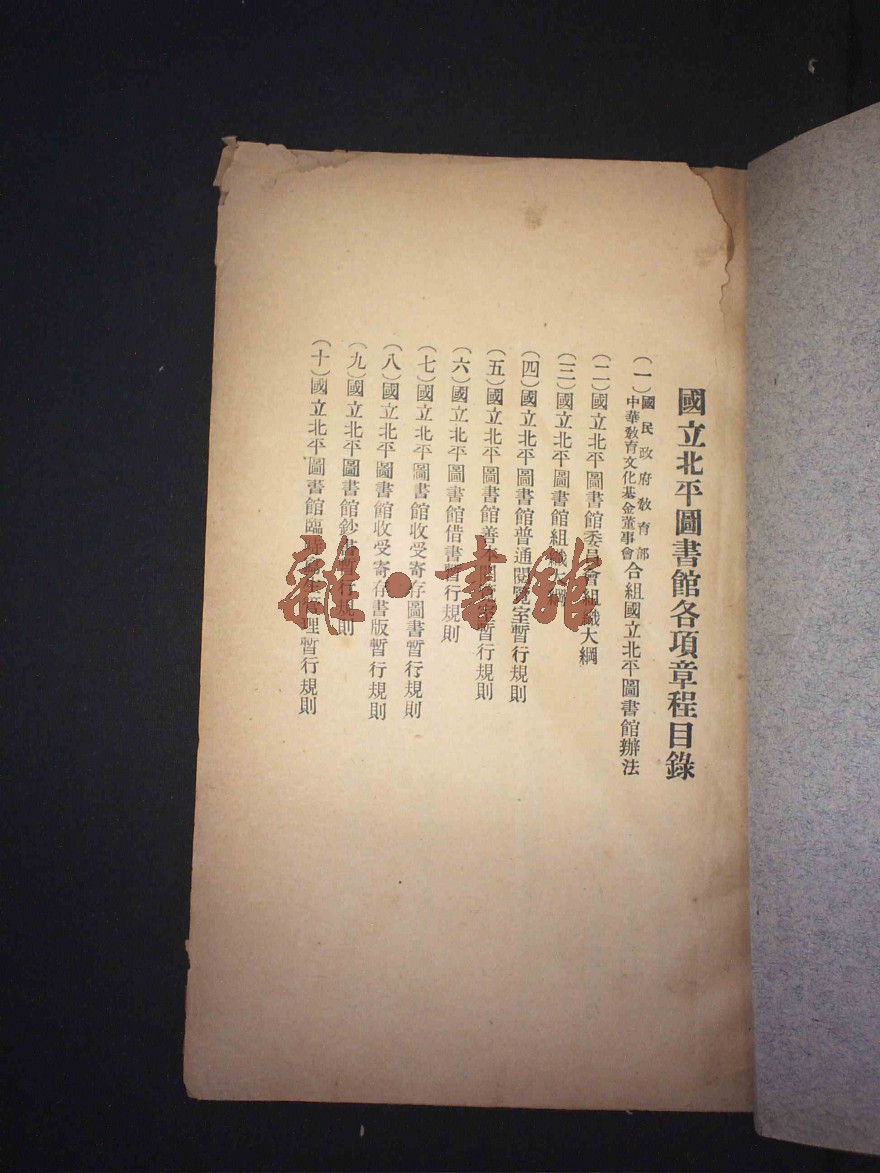 國立北平圖書館各項章程目錄
(一)國民政府教育部中華敎育文化基金董事會合組國立北平圖書館辦法
(二)國立北平圖書館委員會組織大綱
(三)國立北平圖書館組織大綱
(四)國立北平圖書館普通閱覽室暫行規則
(五)國立北平圖書館善本閱覽室暫行規則
(六)國立北平圖書館借書暫行規則
(七)國立北平圖書館收受寄存圖書暫行規則
(八)國立北平圖書館收受寄存書版暫行規則
(九)國立北平圖書館鈔書暫行規則
(十)國立北平圖書館臨時理暫行規則
雜·書館